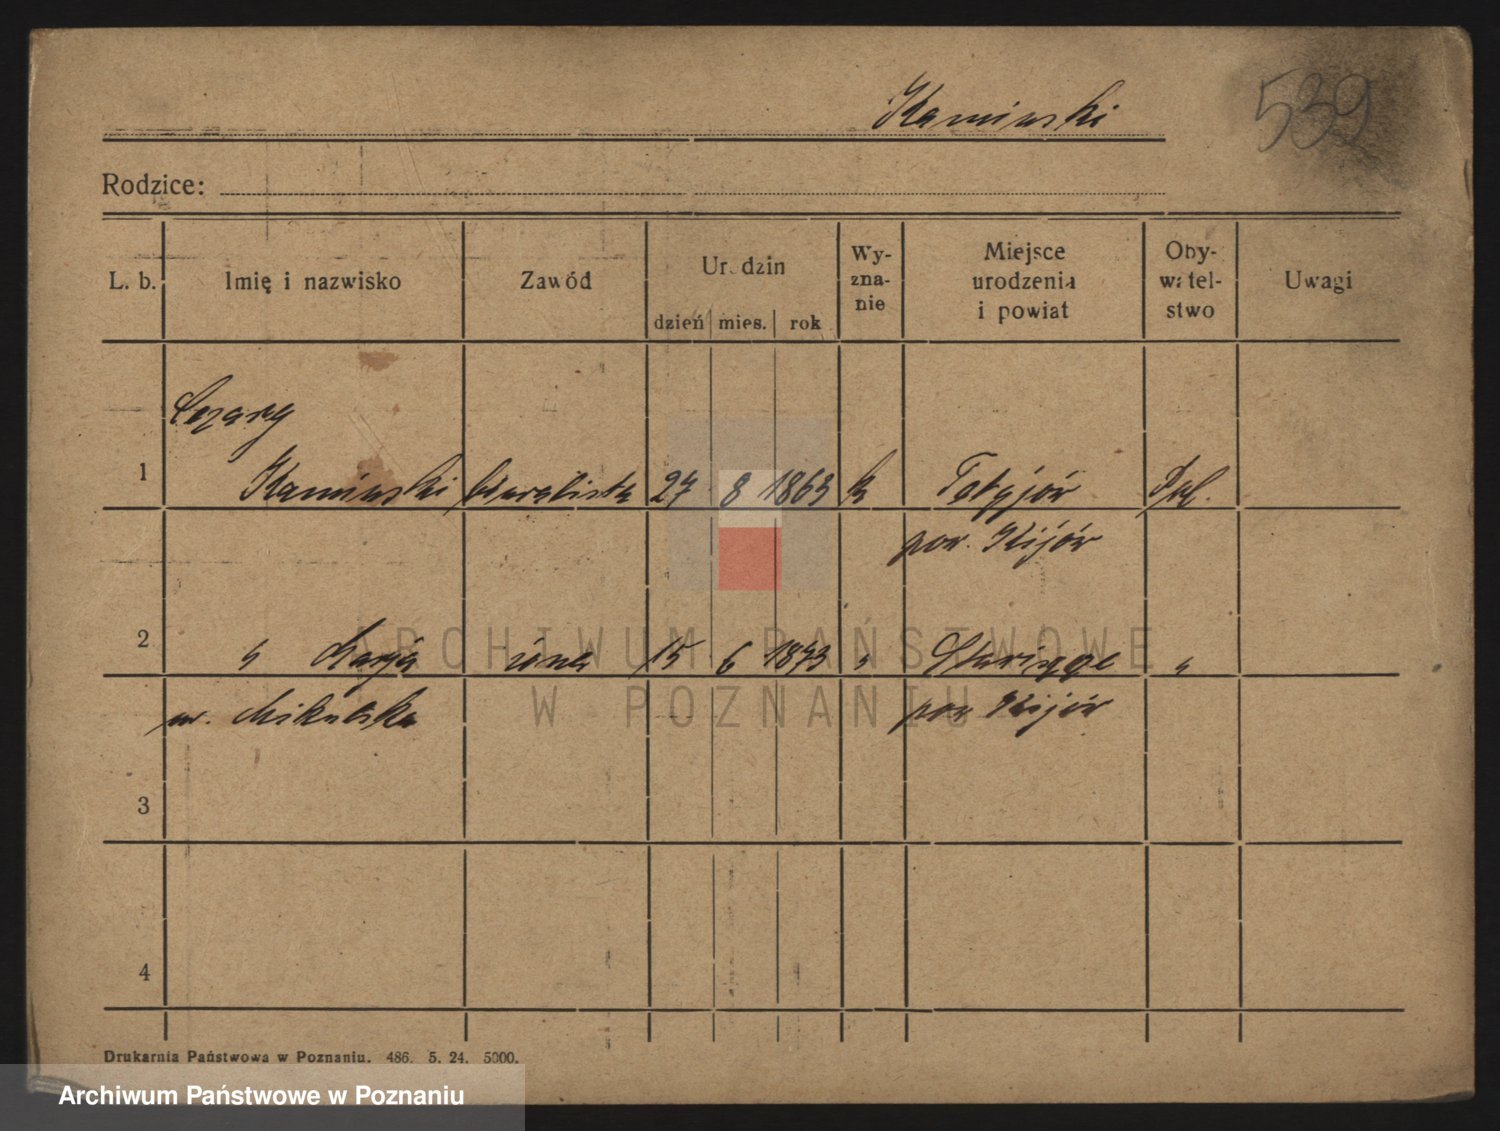 Kamiński
539
Rodzice:
L. b. Imię i nazwisko Zawód Urodzin dzień mies. rok Wy-zna-nie Miejsce urodzenia i powiat Oby-watel-stwo Uwagi
Cezary
1 Kamiński biuralista 27 8 1863 k Pol.
pow. Kijów
2 " Marja żona 15 6 1873 " "
ur. Mikulska pow. Kijów
3
4
Drukarnia Państwowa w Poznaniu. 486. 5. 24. 5000.
ARCHIWUM PAŃSTWOWE
W POZNANIU
Archiwum Państwowe w Poznaniu